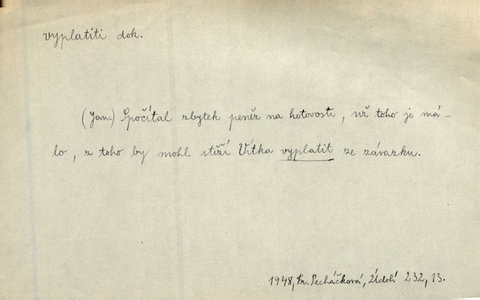 vyplatiti dok.
(Jan.) Spočítal zbytek peněz na hotovosti, už toho je má-
lo, z toho by mohl stěží Vítka vyplatit ze závazku.
1948, Fr. Pecháčková, Údolí 232, 13.